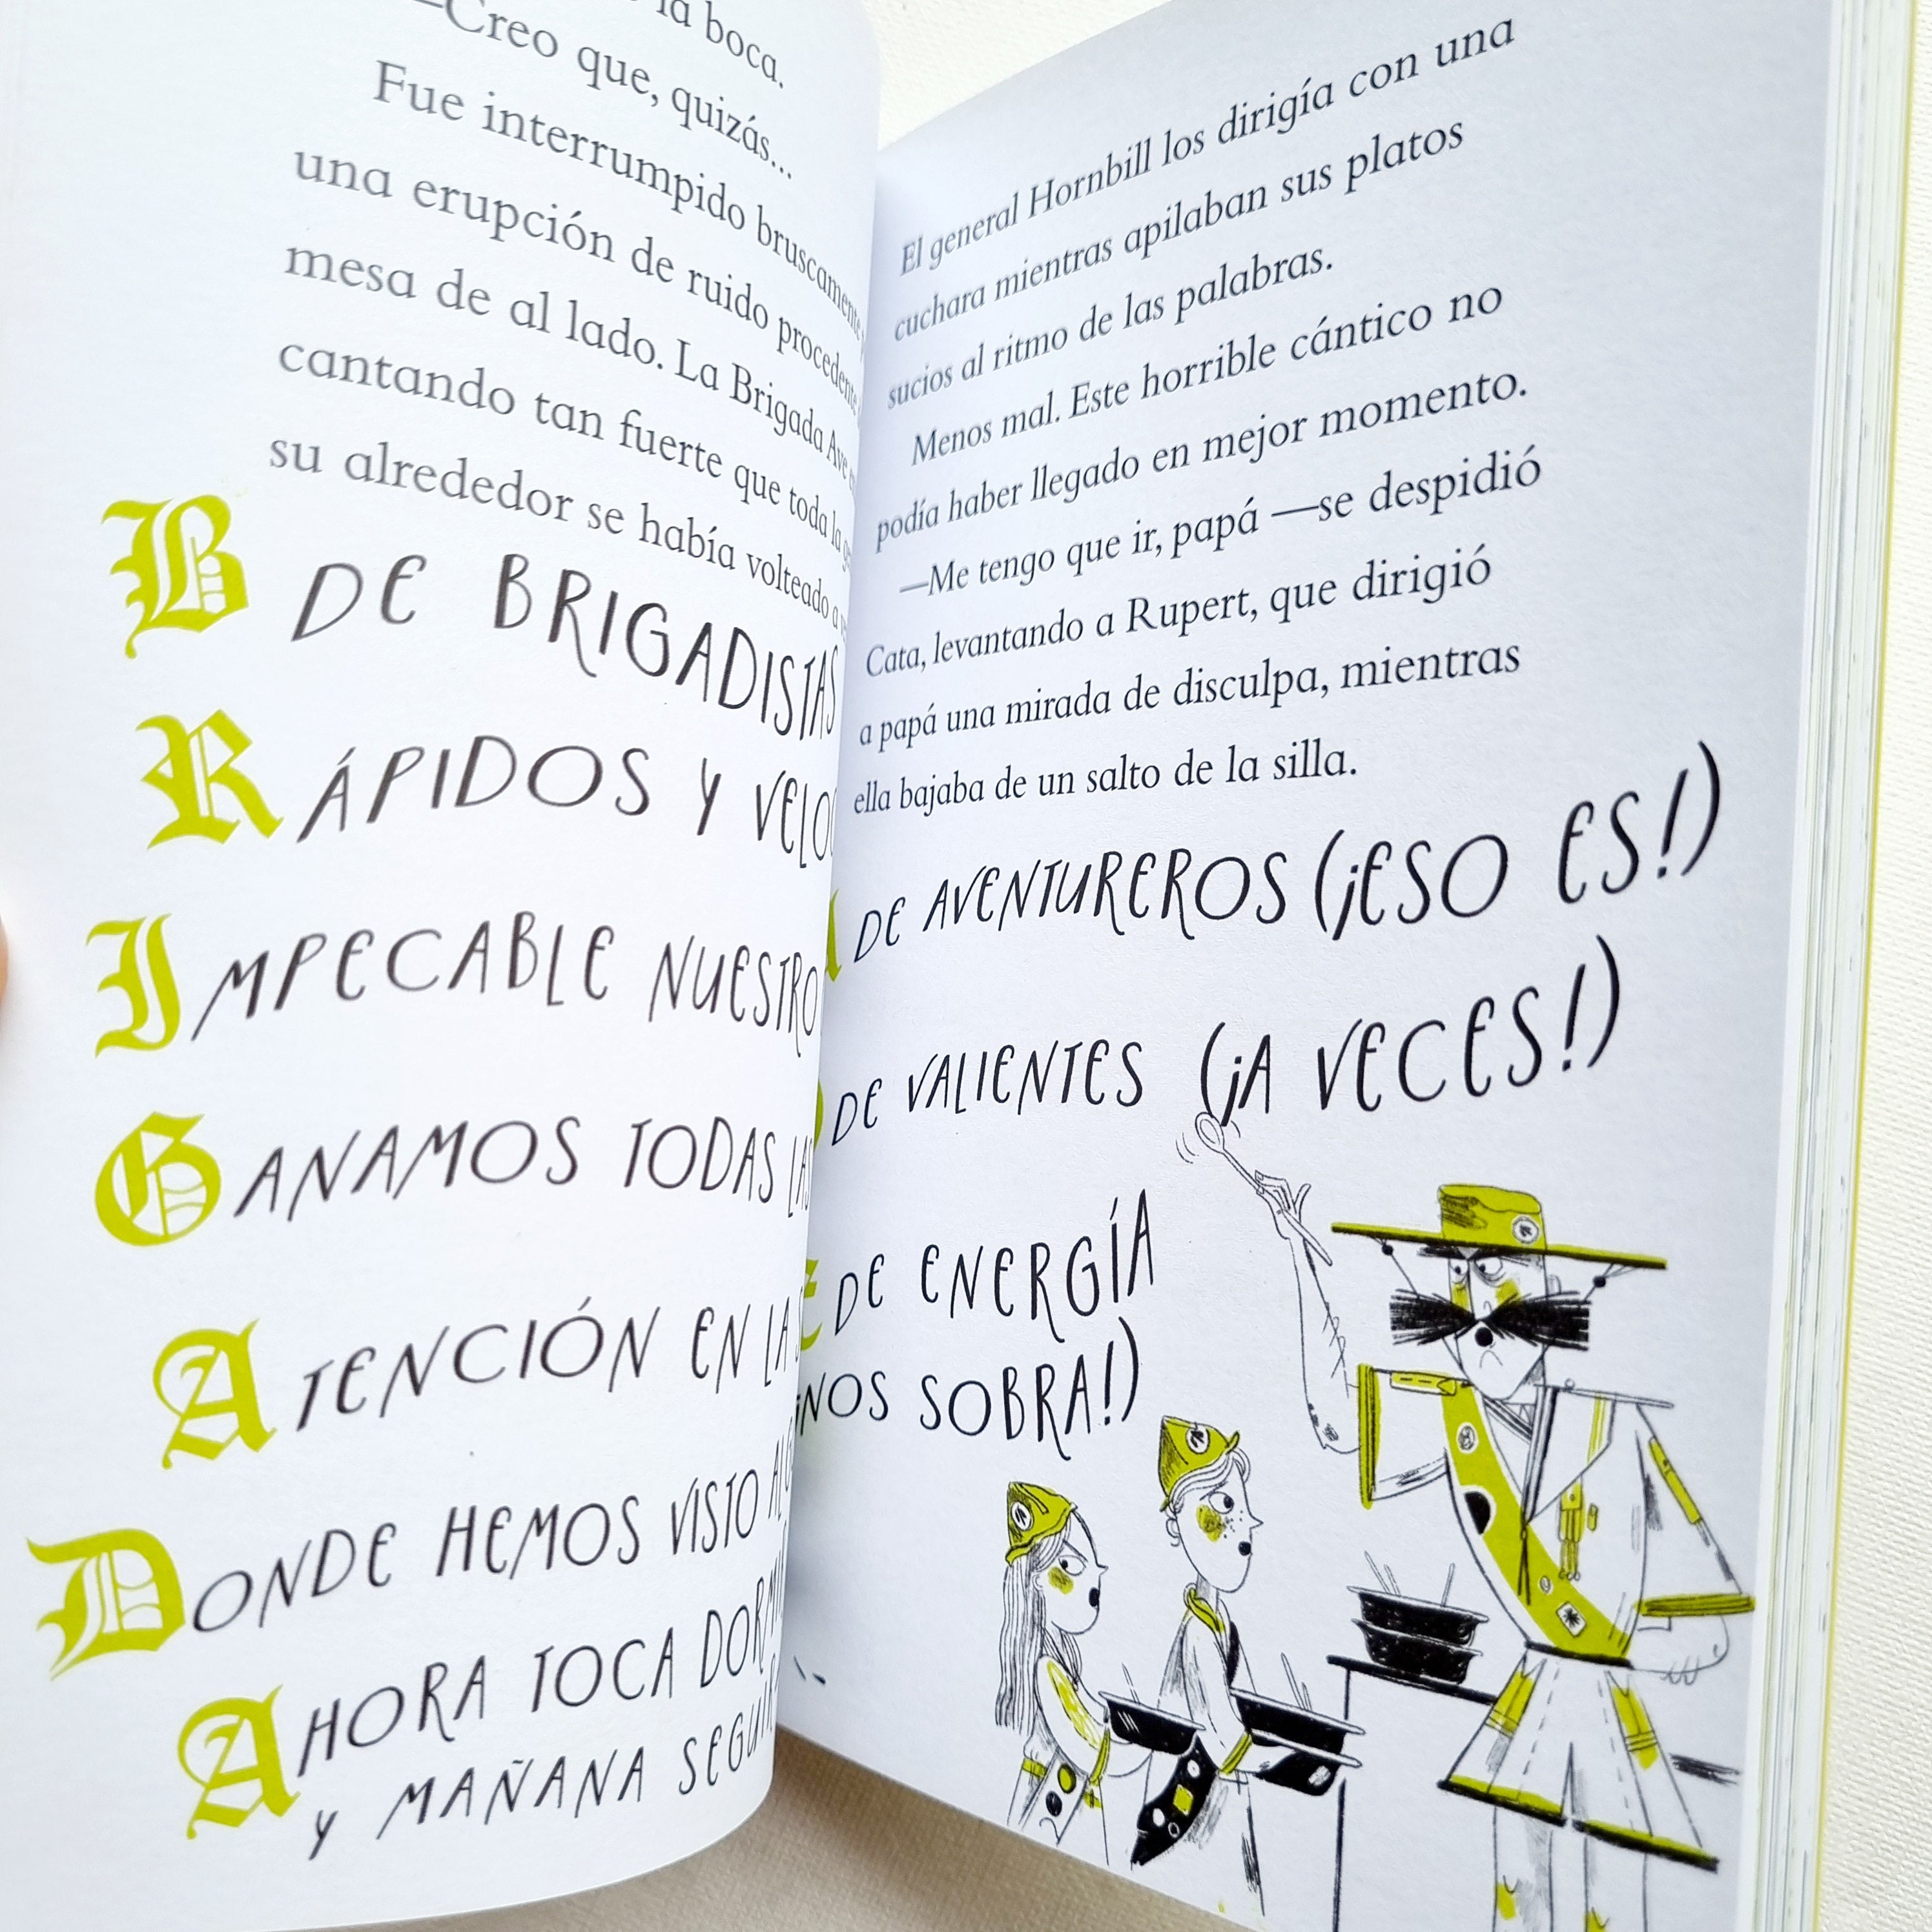 la boca.
—Creo que, quizás...
Fue interrumpido bruscamente
una erupción de ruido procedente
mesa de al lado. La Brigada Ave
cantando tan fuerte que toda la
su alrededor se había volteado a
B DE BRIGADISTAS
RÁPIDOS Y
IMPECABLE NUESTRO
GANAMOS TODAS LAS
ATENCIÓN EN LA
DONDE HEMOS VISTO
AHORA TOCA
Y MAÑANA
El general Hornbill los dirigía con una
cuchara mientras apilaban sus platos
sucios al ritmo de las palabras.
Menos mal. Este horrible cántico no
podía haber llegado en mejor momento.
—Me tengo que ir, papá —se despidió
Cata, levantando a Rupert, que dirigió
a papá una mirada de disculpa, mientras
ella bajaba de un salto de la silla.
A DE AVENTUREROS (¡ESO ES!)
DE VALIENTES (¡A VECES!)
E DE ENERGÍA
¡NOS SOBRA!)